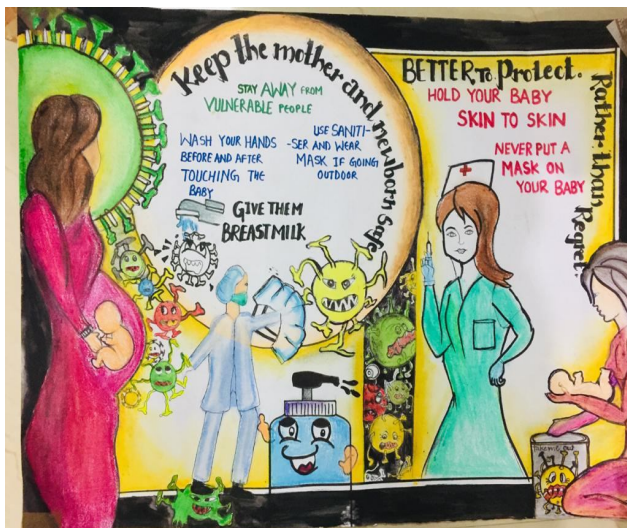 Keep the mother and newborn safe
STAY AWAY FROM
VULNERABLE PEOPLE
WASH YOUR HANDS
BEFORE AND AFTER
TOUCHING THE
BABY
USE SANITI-
-SER AND WEAR
MASK IF GOING
OUTDOOR
GIVE THEM
BREASTMILK
BETTER To Protect.
Rather than
Regret.
HOLD YOUR BABY
SKIN TO SKIN
NEVER PUT A
MASK ON
YOUR BABY